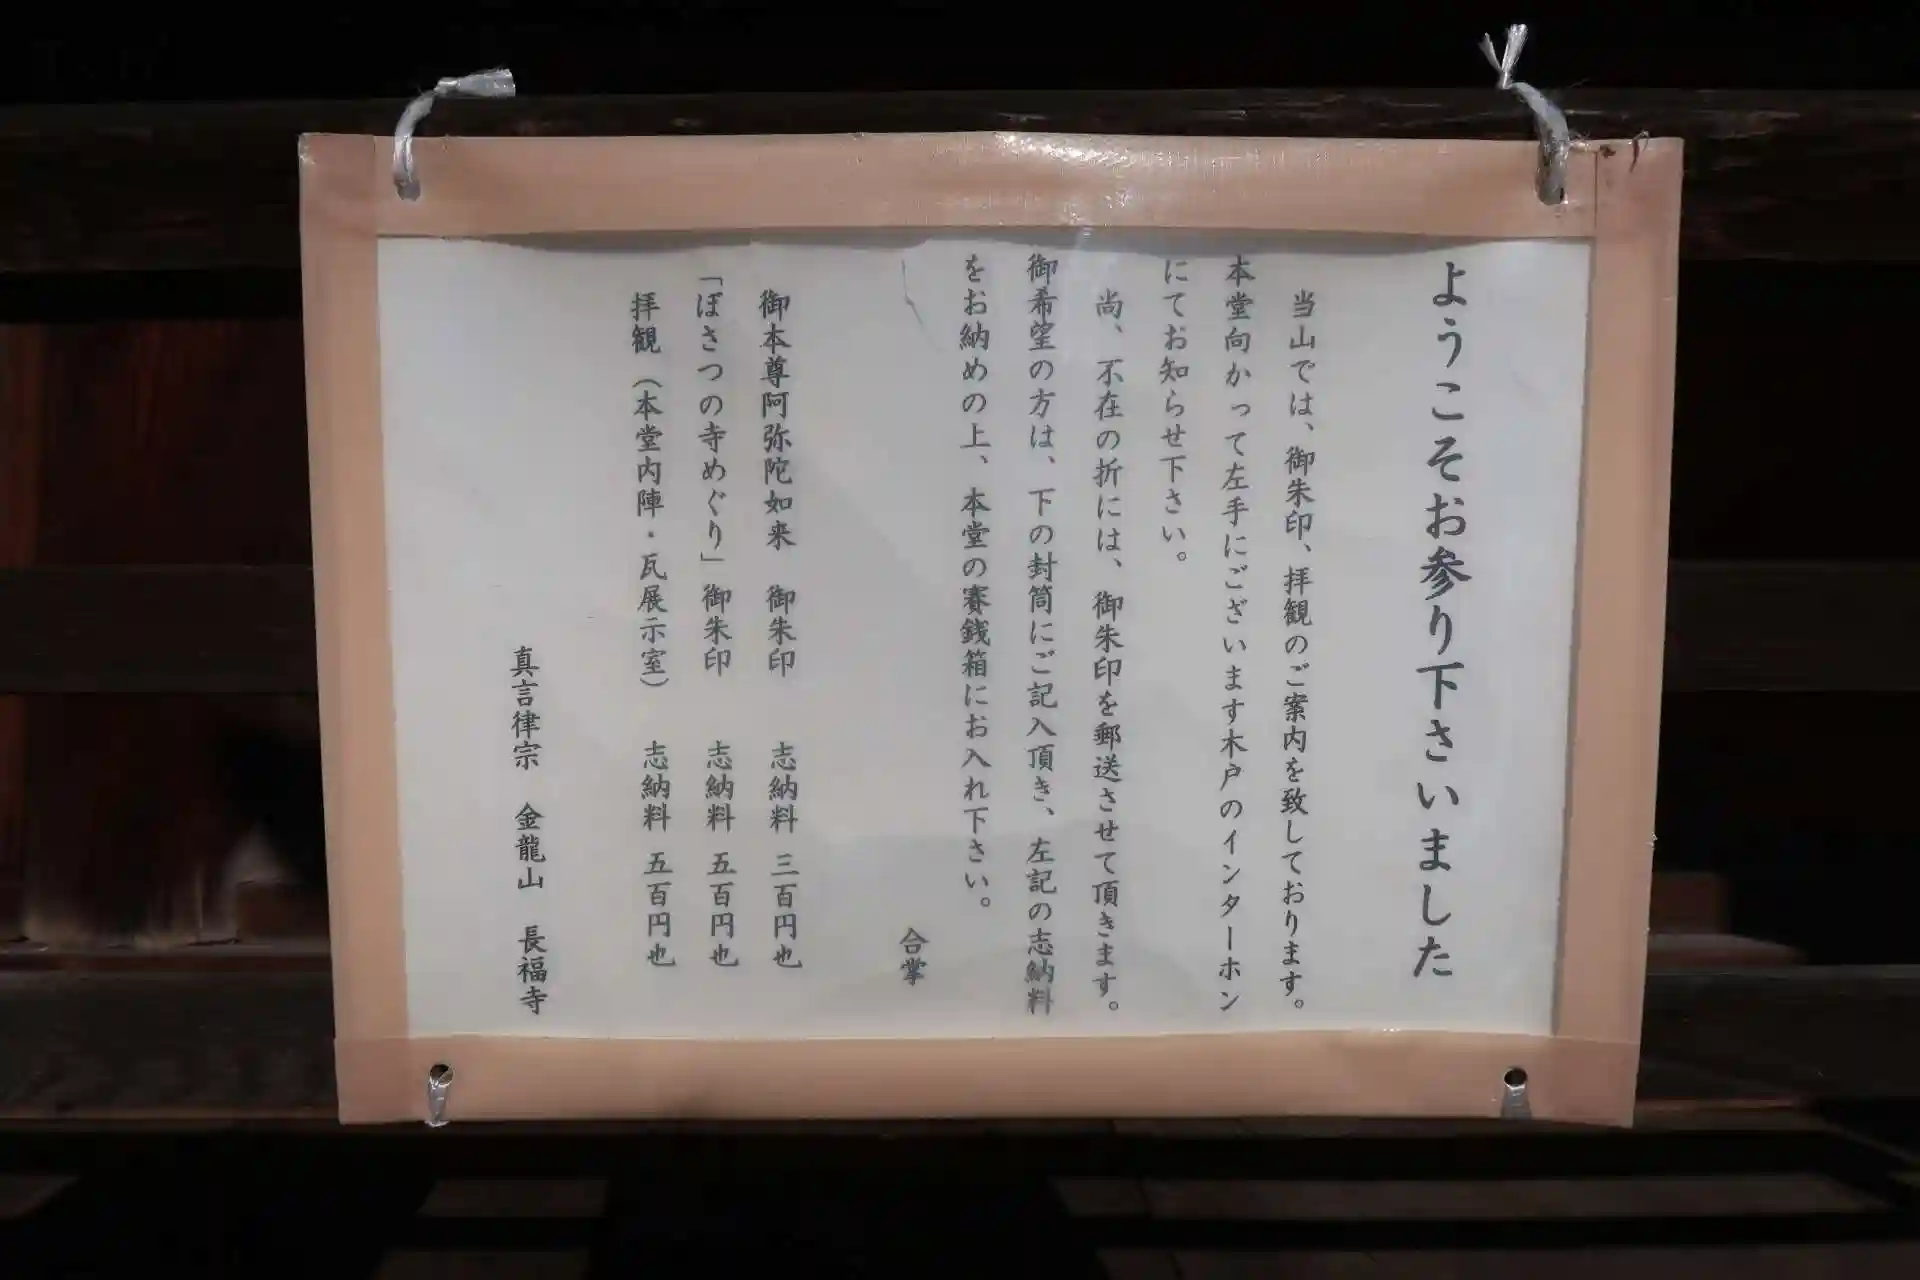 ようこそお参り下さいました
当山では、御朱印、拝観のご案内を致しております。
本堂向かって左手にございます木戸のインターホン
にてお知らせ下さい。
尚、不在の折には、御朱印を郵送させて頂きます。
御希望の方は、下の封筒にご記入頂き、左記の志納料
をお納めの上、本堂の賽銭箱にお入れ下さい。
合掌
御本尊阿弥陀如来 御朱印 志納料 三百円也
「ぼさつの寺めぐり」御朱印 志納料 五百円也
拝観（本堂内陣・瓦展示室） 志納料 五百円也
真言律宗 金龍山 長福寺